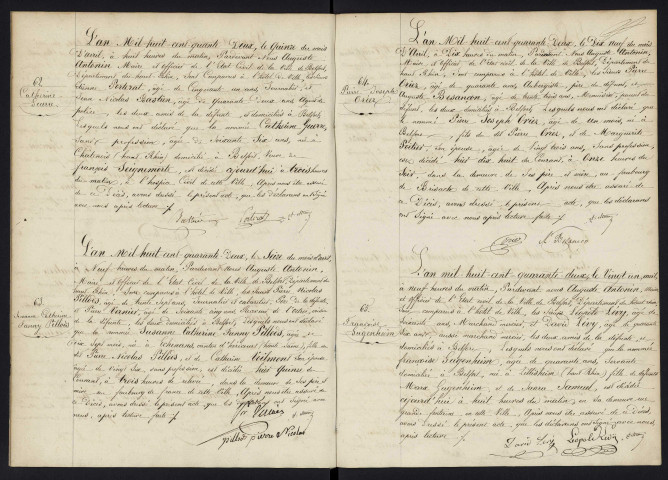 62.
Catherine
L'an Mil huit cent quarante Deux, le quinze du mois
d'avril, à huit heures du matin, Pardevant Nous Auguste
Antonin, Maire et officier de l'Etat Civil de la Ville de Belfort,
Département du haut Rhin, Sont Comparus à l'hôtel de Ville,
âgé de Cinquante ans, Journalier et
Jean Nicolas âgé de quarante deux ans Agent de
police les deux amis de la défunte et domiciliés à Belfort,
Lesquels nous ont déclaré que la nommée Catherine
Sans profession, âgée de Soixante Six ans, née à
(haut Rhin) domiciliée à Belfort, Veuve de
françois est décédée aujourd'hui à trois heures
du matin, à l'hospice Civil de cette Ville. Après nous être assuré
de ce Décès, nous avons dressé le présent acte, que les déclarants ont Signé
avec nous après lecture faite.
63.
Jeanne Catherine
Fanny Pillods
L'an Mil huit cent quarante Deux, le Seize du mois d'avril,
à Neuf heures du matin, Pardevant Nous Auguste Antonin,
Maire et officier de l'Etat Civil de la Ville de Belfort, Département du
haut Rhin, Sont comparus à l'hôtel de Ville, Pierre Nicolas
Pillods, âgé de Journalier et cabaretier, Père de la défunte,
et Pierre
les deux domiciliés à Belfort, Lesquels nous ont déclaré
que la nommée Jeanne Catherine Fanny Pillods, âgée de
Dix Sept mois, née à haut Saône, fille de
dit Pierre Nicolas Pillods, et de Catherine Son épouse,
âgée de Vingt Six ans, Sans profession, est décédée hier quinze du
Courant, à trois heures de relevée, dans la demeure de Ses père et
mère au faubourg de france de cette Ville. Après nous être assuré de
ce Décès, nous avons dressé le présent acte, que les ont Signé avec
nous, après lecture faite.
pillods pierre Nicolas
64.
Pierre Joseph
Oriez
L'an Mil huit cent quarante Deux, le Dix neuf du mois
d'Avril, à Dix heures du matin, Pardevant Nous Auguste Antonin,
Maire, et officier de l'Etat civil de la Ville de Belfort, Département du
haut Rhin, Sont comparus à l'hôtel de Ville, les Sieurs Pierre
Oriez, âgé de quarante ans, Aubergiste, père du défunt, et
Auguste Besançon, âgé de trente trois ans, Menuisier, parent du
défunt, les deux domiciliés à Belfort, Lesquels nous ont déclaré que
le nommé Pierre Joseph Oriez, âgé de Un mois, né à
Belfort, fils de dit Pierre Oriez, et de Marguerite
Son épouse, âgée de Vingt trois ans, Sans profession,
est décédé hier dix huit du Courant, à Onze heures du
Soir, dans la demeure de Ses père et mère, au faubourg
de Brisach de cette Ville, Après nous être assuré de
ce Décès, nous avons dressé le présent acte, que les déclarants
ont Signé avec nous après lecture faite.
Oriez A. Besançon
65.
Françoise
Gugenheim
L'an mil huit cent quarante deux, le Vingt un, mai,
à neuf heures du matin, Pardevant nous Auguste Antonin, Maire
et officier de l'Etat civil de la Ville de Belfort, Département du haut Rhin,
Sont comparus à l'hôtel de Ville, les Sieurs Léopold Lévy, âgé de
ans, Marchand mercier, et David Lévy, âgé de quarante
ans, aussi marchand mercier, les deux amis de la défunte et
domiciliés à Belfort, Lesquels nous ont déclaré que la nommée
françoise Gugenheim, âgée de quarante ans, Servante,
domiciliée à Belfort, née à (haut Rhin), fille de défunts
Marx Gugenheim, et de Samuel, est décédée
aujourd'hui à huit heures du matin, en Sa demeure rue
grande fontaine, en cette Ville, Après nous être assuré de ce Décès,
nous avons dressé le présent acte, que les déclarants ont Signé avec nous
après lecture.
David Lévy Léopold Lévy